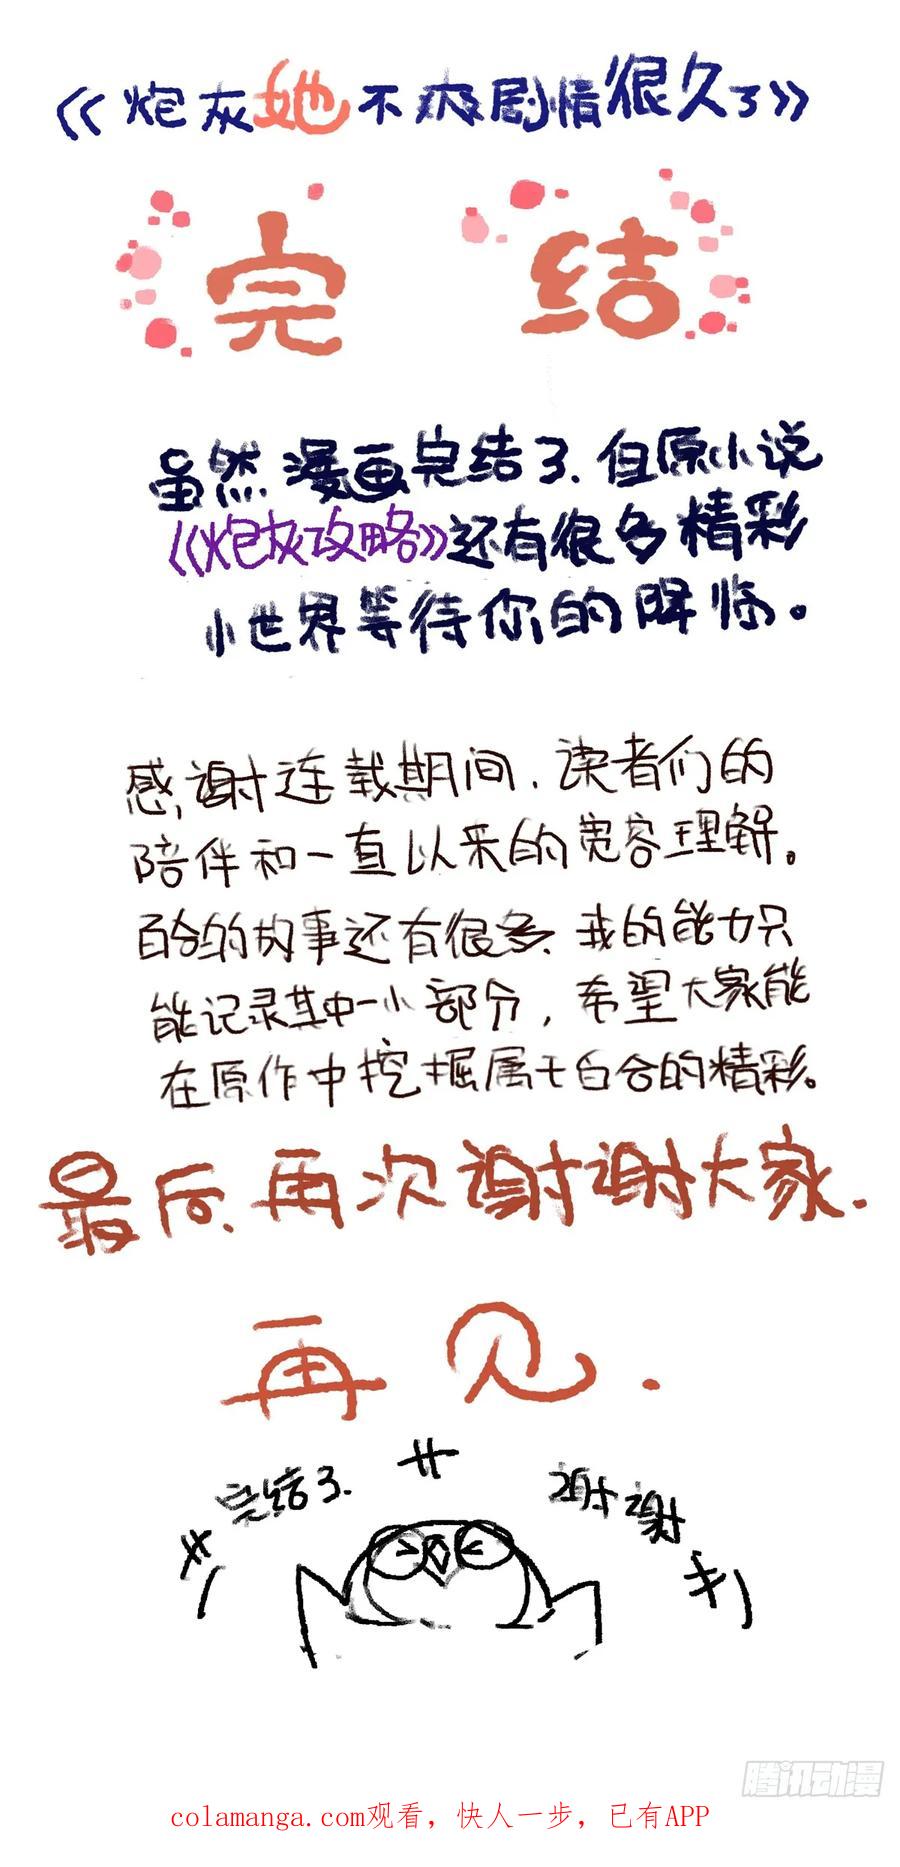 《炮灰她不爽剧情很久了》
完 结
虽然漫画完结了、但原小说
《炮灰攻略》还有很多精彩
小世界等待你的降临。
感谢连载期间，读者们的
陪伴和一直以来的宽容理解。
百合的故事还有很多、我的能力只
能记录其中一小部分，希望大家能
在原作中挖掘属于百合的精彩。
最后、再次谢谢大家.
再见.
完结了. 谢谢
腾讯动漫
colamanga.com观看，快人一步，已有APP